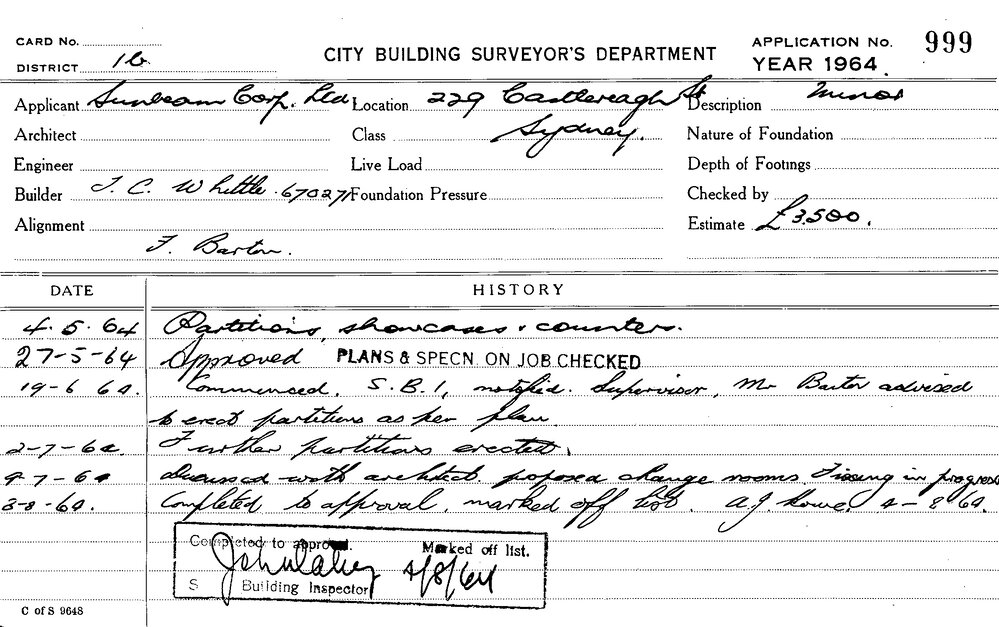 CARD No.
DISTRICT 1b
CITY BUILDING SURVEYOR'S DEPARTMENT
APPLICATION No. 999
YEAR 1964
Applicant Sunbeam Corp. Ltd. Location 229 Castlereagh St Description Minor
Architect Class Sydney. Nature of Foundation
Engineer Live Load Depth of Footings
Builder J. C. Whittle 670271 Foundation Pressure Checked by
Alignment Estimate £3,500.
F. Barton.
DATE HISTORY
4.5.64 Partitions, showcases & counters.
27-5-64 Approved PLANS & SPECN. ON JOB CHECKED
19-6 64. Commenced. S.B.I. notified. Supervisor, Mr Barton advised
to erect partitions as per plan.
2-7-64. Further partitions erected.
9-7-64 discussed with architect proposed change rooms. in progress
3-8-64. Completed to approval, marked off list. A.J. 4-8 64.
Completed to approval. Marked off list.
4/8/64
S Building Inspector
C of S 9648